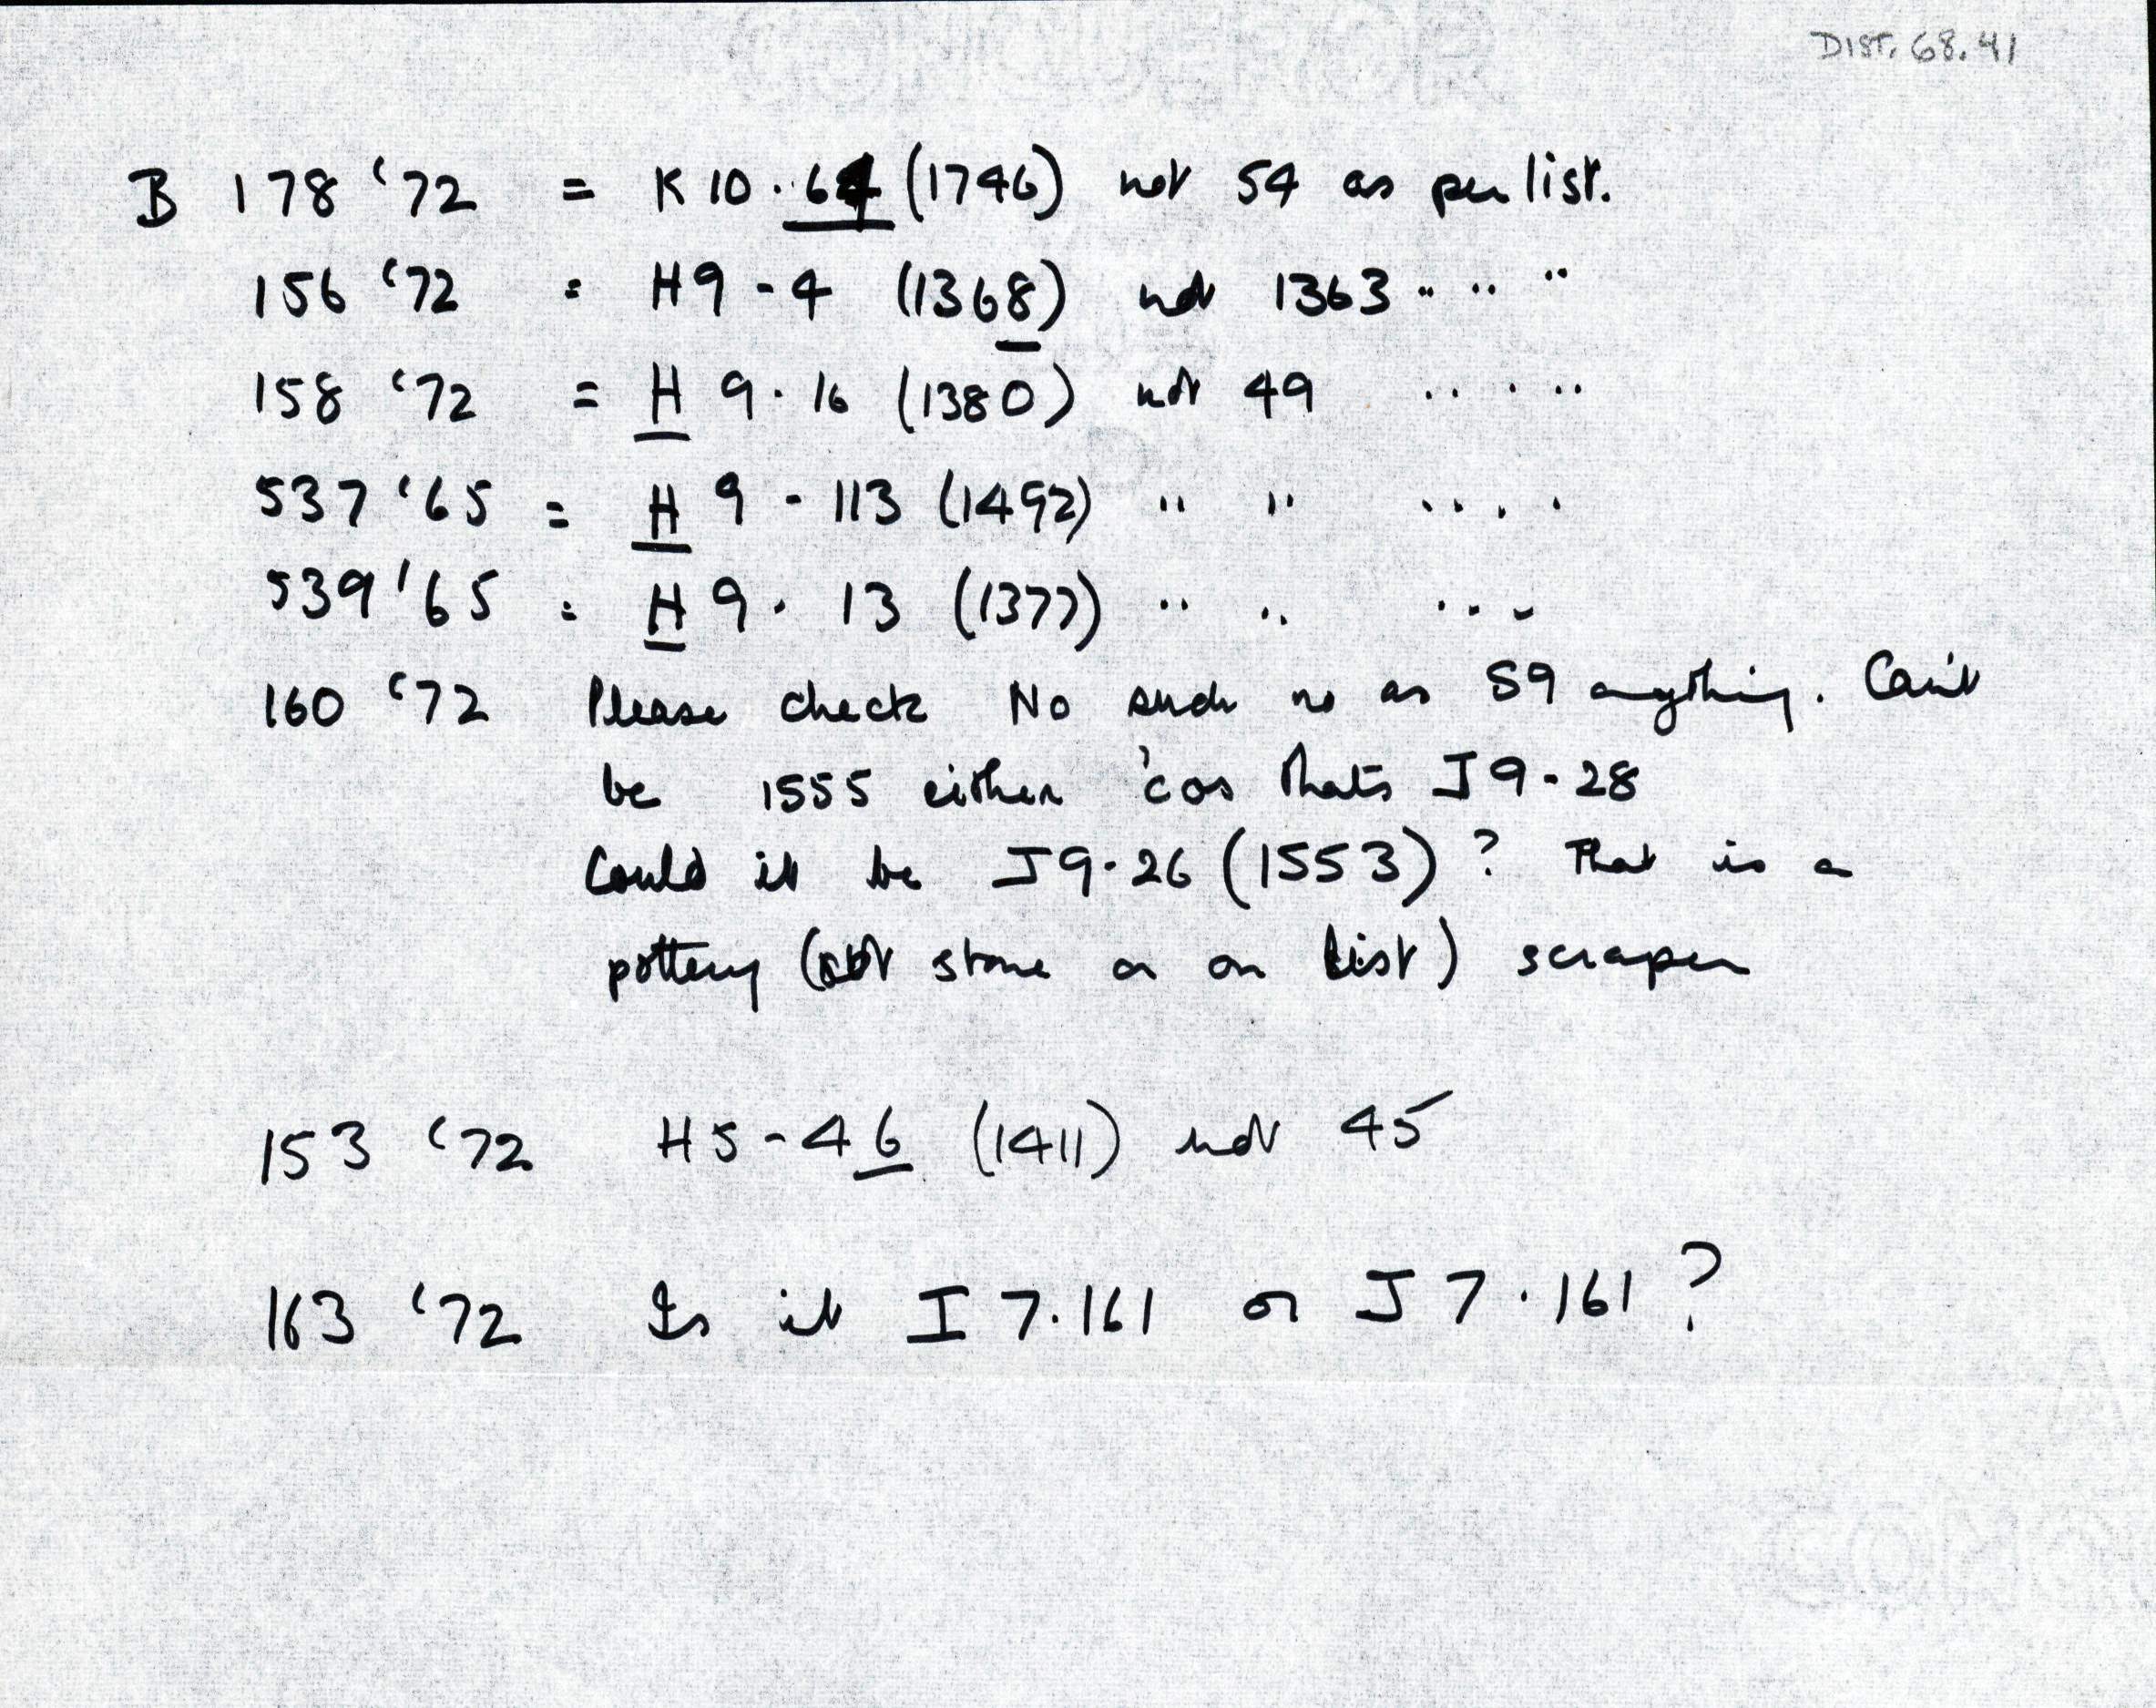 DIST. 68.41
B 178 '72 = K10.64 (1746) not 54 as per list.
156 '72 = H9-4 (1368) not 1363 " " "
158 '72 = H 9.16 (1380) not 49 " " "
537 '65 = H 9-113 (1492) " " " "
539 '65 = H 9.13 (1377) " " " "
160 '72 Please check No such no as S9 anything. Can't
be 1555 either 'cos that's J9-28
Could it be J9.26 (1553)? That is a
pottery (not stone as on list) scraper
153 '72 H5-46 (1411) not 45
163 '72 Is it I7.161 or J7.161?